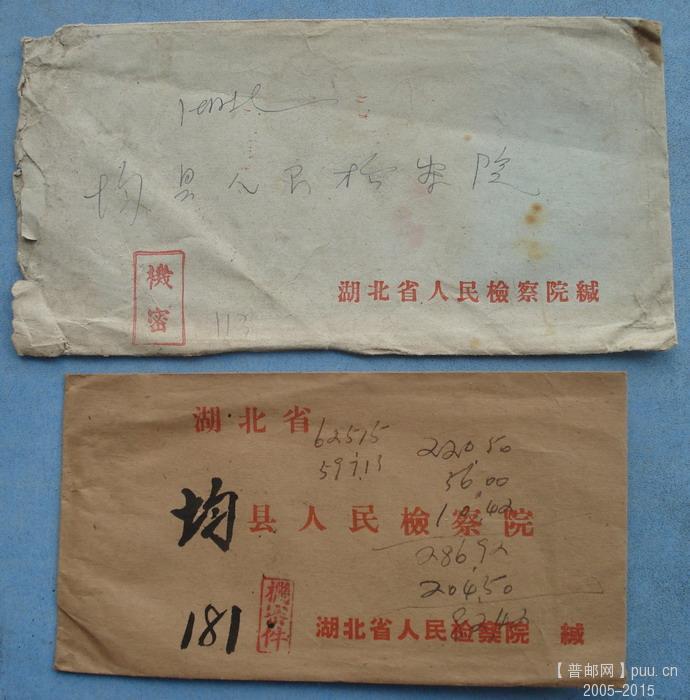 湖北
均县人民检察院
機密
湖北省人民檢察院緘
113
湖北省
625.15
597.13
220.50
56.00
均县人民檢察院
10.42
286.92
204.50
82.42
181
機密件
湖北省人民检察院 緘
【普邮网】puu.cn
2005-2015